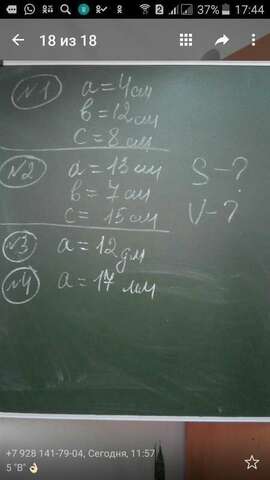 37% 17:44
18 из 18
№1 a = 4 см
в = 12 см
c = 8 см
№2 a = 13 см S - ?
в = 7 см
c = 15 см V - ?
№3 a = 12 дм
№4 a = 17 мм
+7 928 141-79-04, Сегодня, 11:57
5 "В" 👌